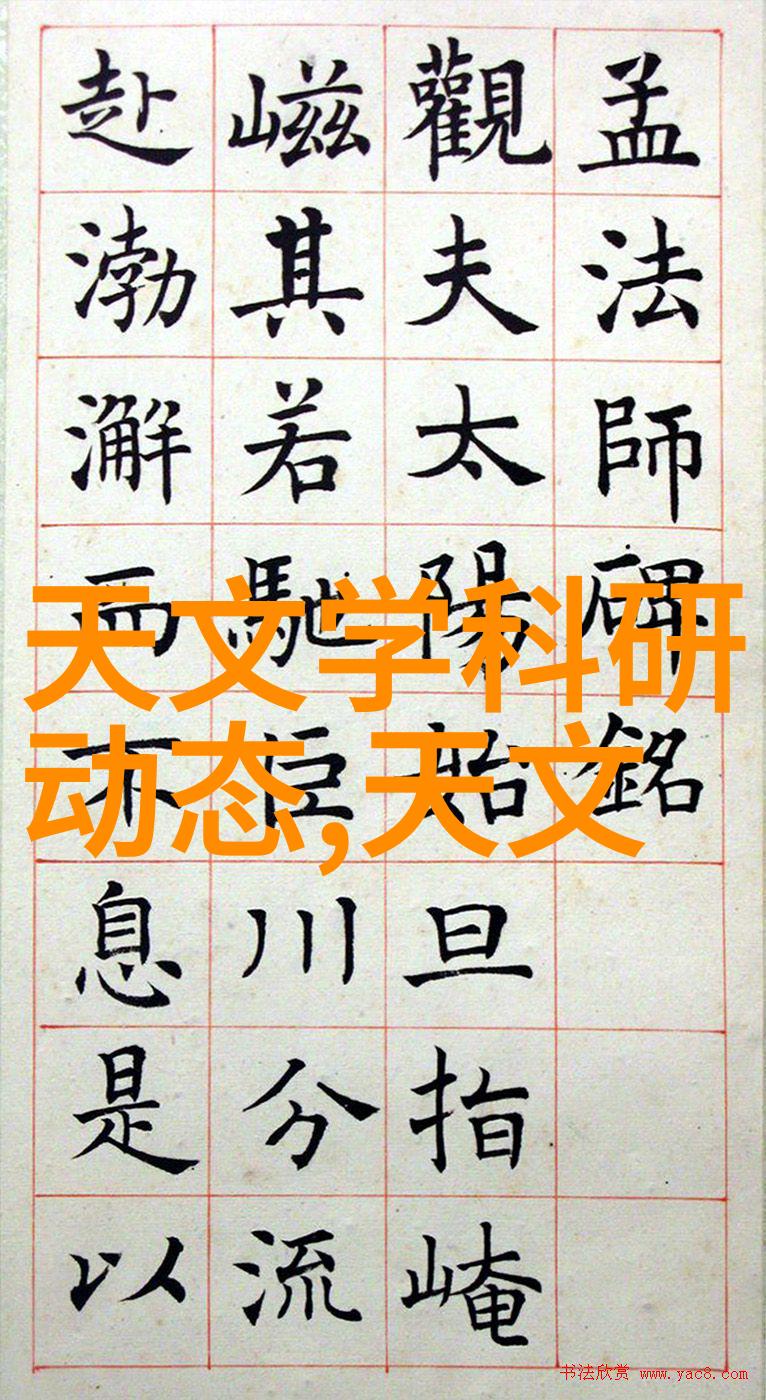 孟法師碑銘
觀夫太陽始旦指崦
嵫其若馳臣川分流
赴渤澥而不息是以
天文学科研
动态,天文
书法欣赏 www.yac8.com